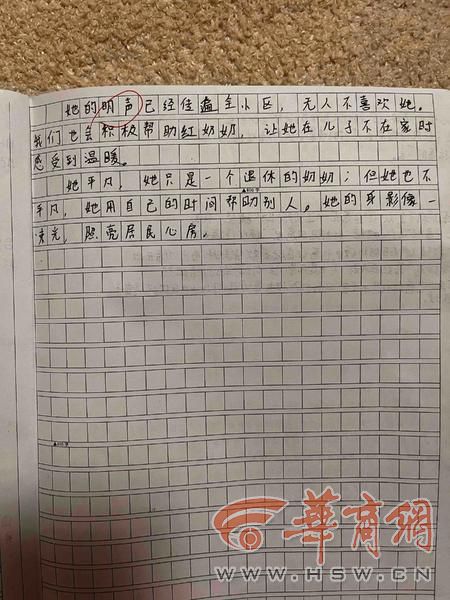 她的明声已经佳遍全小区，无人不喜欢她。
我们也会积极帮助红奶奶，让她在儿子不在家时
感受到温暖。
她平凡，她只是一个退休的奶奶；但她也不
平凡，她用自己的时间帮助别人。她的身影像一
束光，照亮居民心房。
華商網
WWW.HSW.CN